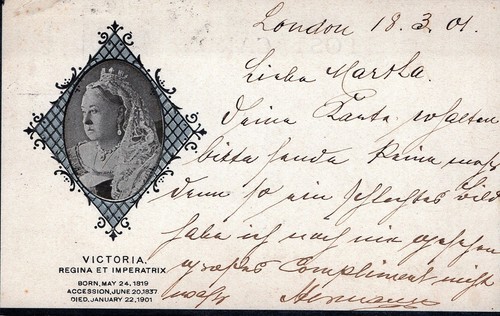 London 18.3.01.
Liebe Martha.
Deine Karte erhalten
bitte sende keine mehr
denn so ein schlechtes Bild
habe ich noch nie gesehen
grosses Compliment nicht
wahr Hermann
VICTORIA.
REGINA ET IMPERATRIX
BORN, MAY 24, 1819
ACCESSION, JUNE 20, 1837
DIED, JANUARY 22, 1901